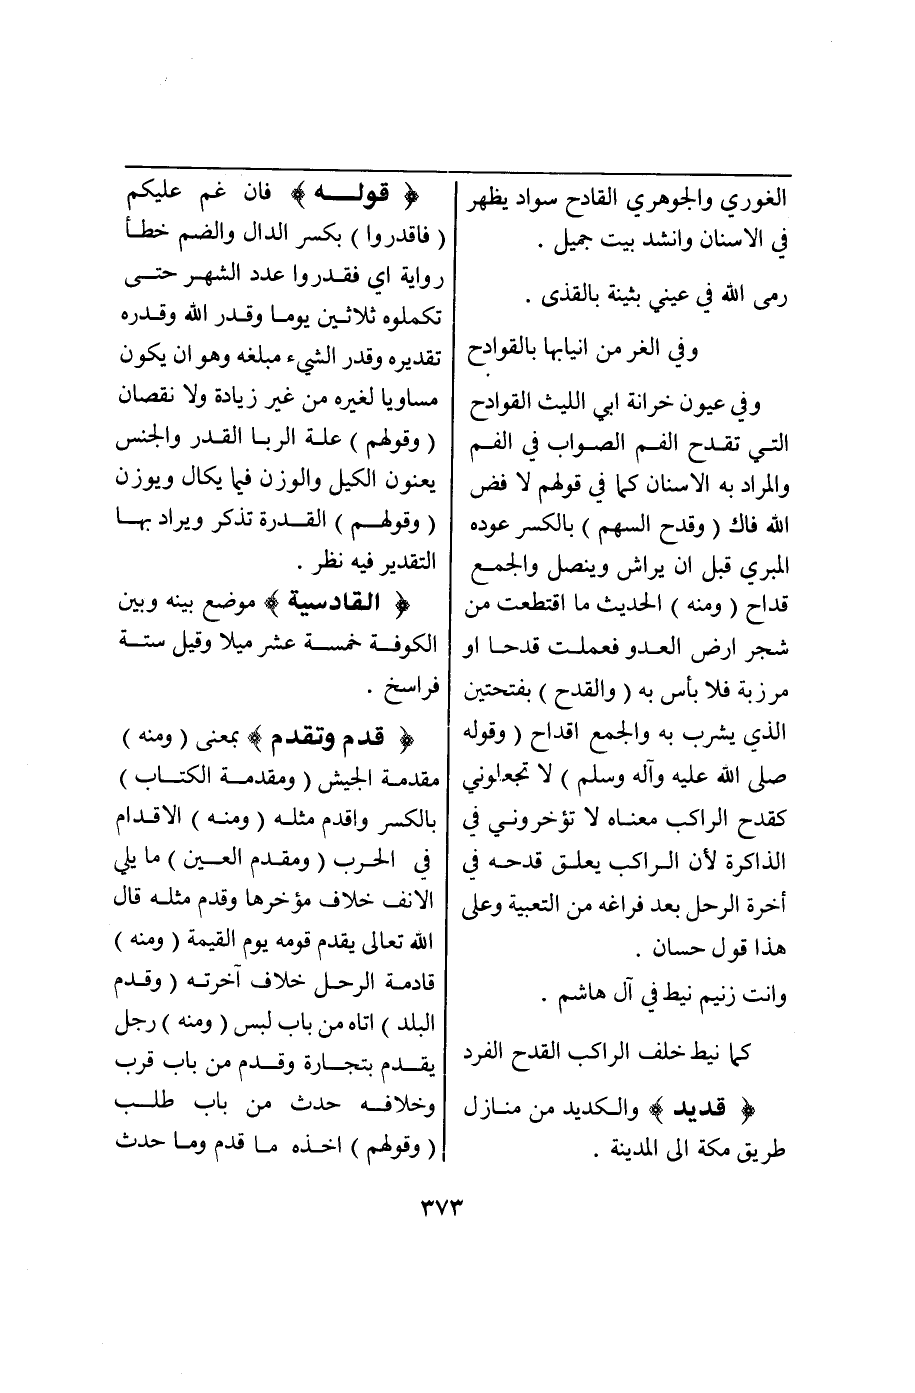 الغوري والجوهري القادح سواد يظهر
في الاسنان وانشد بيت جميل .
رمى الله في عيني بثينة بالقذى .
وفي الغر من انيابها بالقوادح
وفي عيون خرانة ابي الليث القوادح
التي تقدح الفم الصواب في الفم
والمراد به الاسنان كما في قولهم لا فض
الله فاك ( وقدح السهم ) بالكسر عوده
المبري قبل ان يراش وينصل والجمع
قداح ( ومنه ) الحديث ما اقتطعت من
شجر ارض العدو فعملت قدحا او
مرزبة فلا بأس به ( والقدح ) بفتحتين
الذي يشرب به والجمع اقداح ( وقوله
صلى الله عليه وآله وسلم ) لا تجعلوني
كقدح الراكب معناه لا تؤخروني في
الذاكرة لأن الراكب يعلق قدحه في
أخرة الرحل بعد فراغه من التعبية وعلى
هذا قول حسان .
وانت زنيم نيط في آل هاشم .
كما نيط خلف الراكب القدح الفرد
﴿ قديد ﴾ والكديد من منازل
طريق مكة الى المدينة .
﴿ قوله ﴾ فان غم عليكم
( فاقدروا ) بكسر الدال والضم خطأ
رواية اي فقدروا عدد الشهر حتى
تكملوه ثلاثين يوما وقدر الله وقدره
تقديره وقدر الشيء مبلغه وهو ان يكون
مساويا لغيره من غير زيادة ولا نقصان
( وقولهم ) علة الربا القدر والجنس
يعنون الكيل والوزن فيما يكال ويوزن
( وقولهم ) القدرة تذكر ويراد بها
التقدير فيه نظر .
﴿ القادسية ﴾ موضع بينه وبين
الكوفة خمسة عشر ميلا وقيل ستة
فراسخ .
﴿ قدم وتقدم ﴾ بمعنى ( ومنه )
مقدمة الجيش ( ومقدمة الكتاب )
بالكسر واقدم مثله ( ومنه ) الاقدام
في الحرب ( ومقدم العين ) ما يلي
الانف خلاف مؤخرها وقدم مثله قال
الله تعالى يقدم قومه يوم القيمة ( ومنه )
قادمة الرحل خلاف آخرته ( وقدم
البلد ) اتاه من باب لبس ( ومنه ) رجل
يقدم بتجارة وقدم من باب قرب
وخلافه حدث من باب طلب
( وقولهم ) اخذه ما قدم وما حدث
٣٧٣